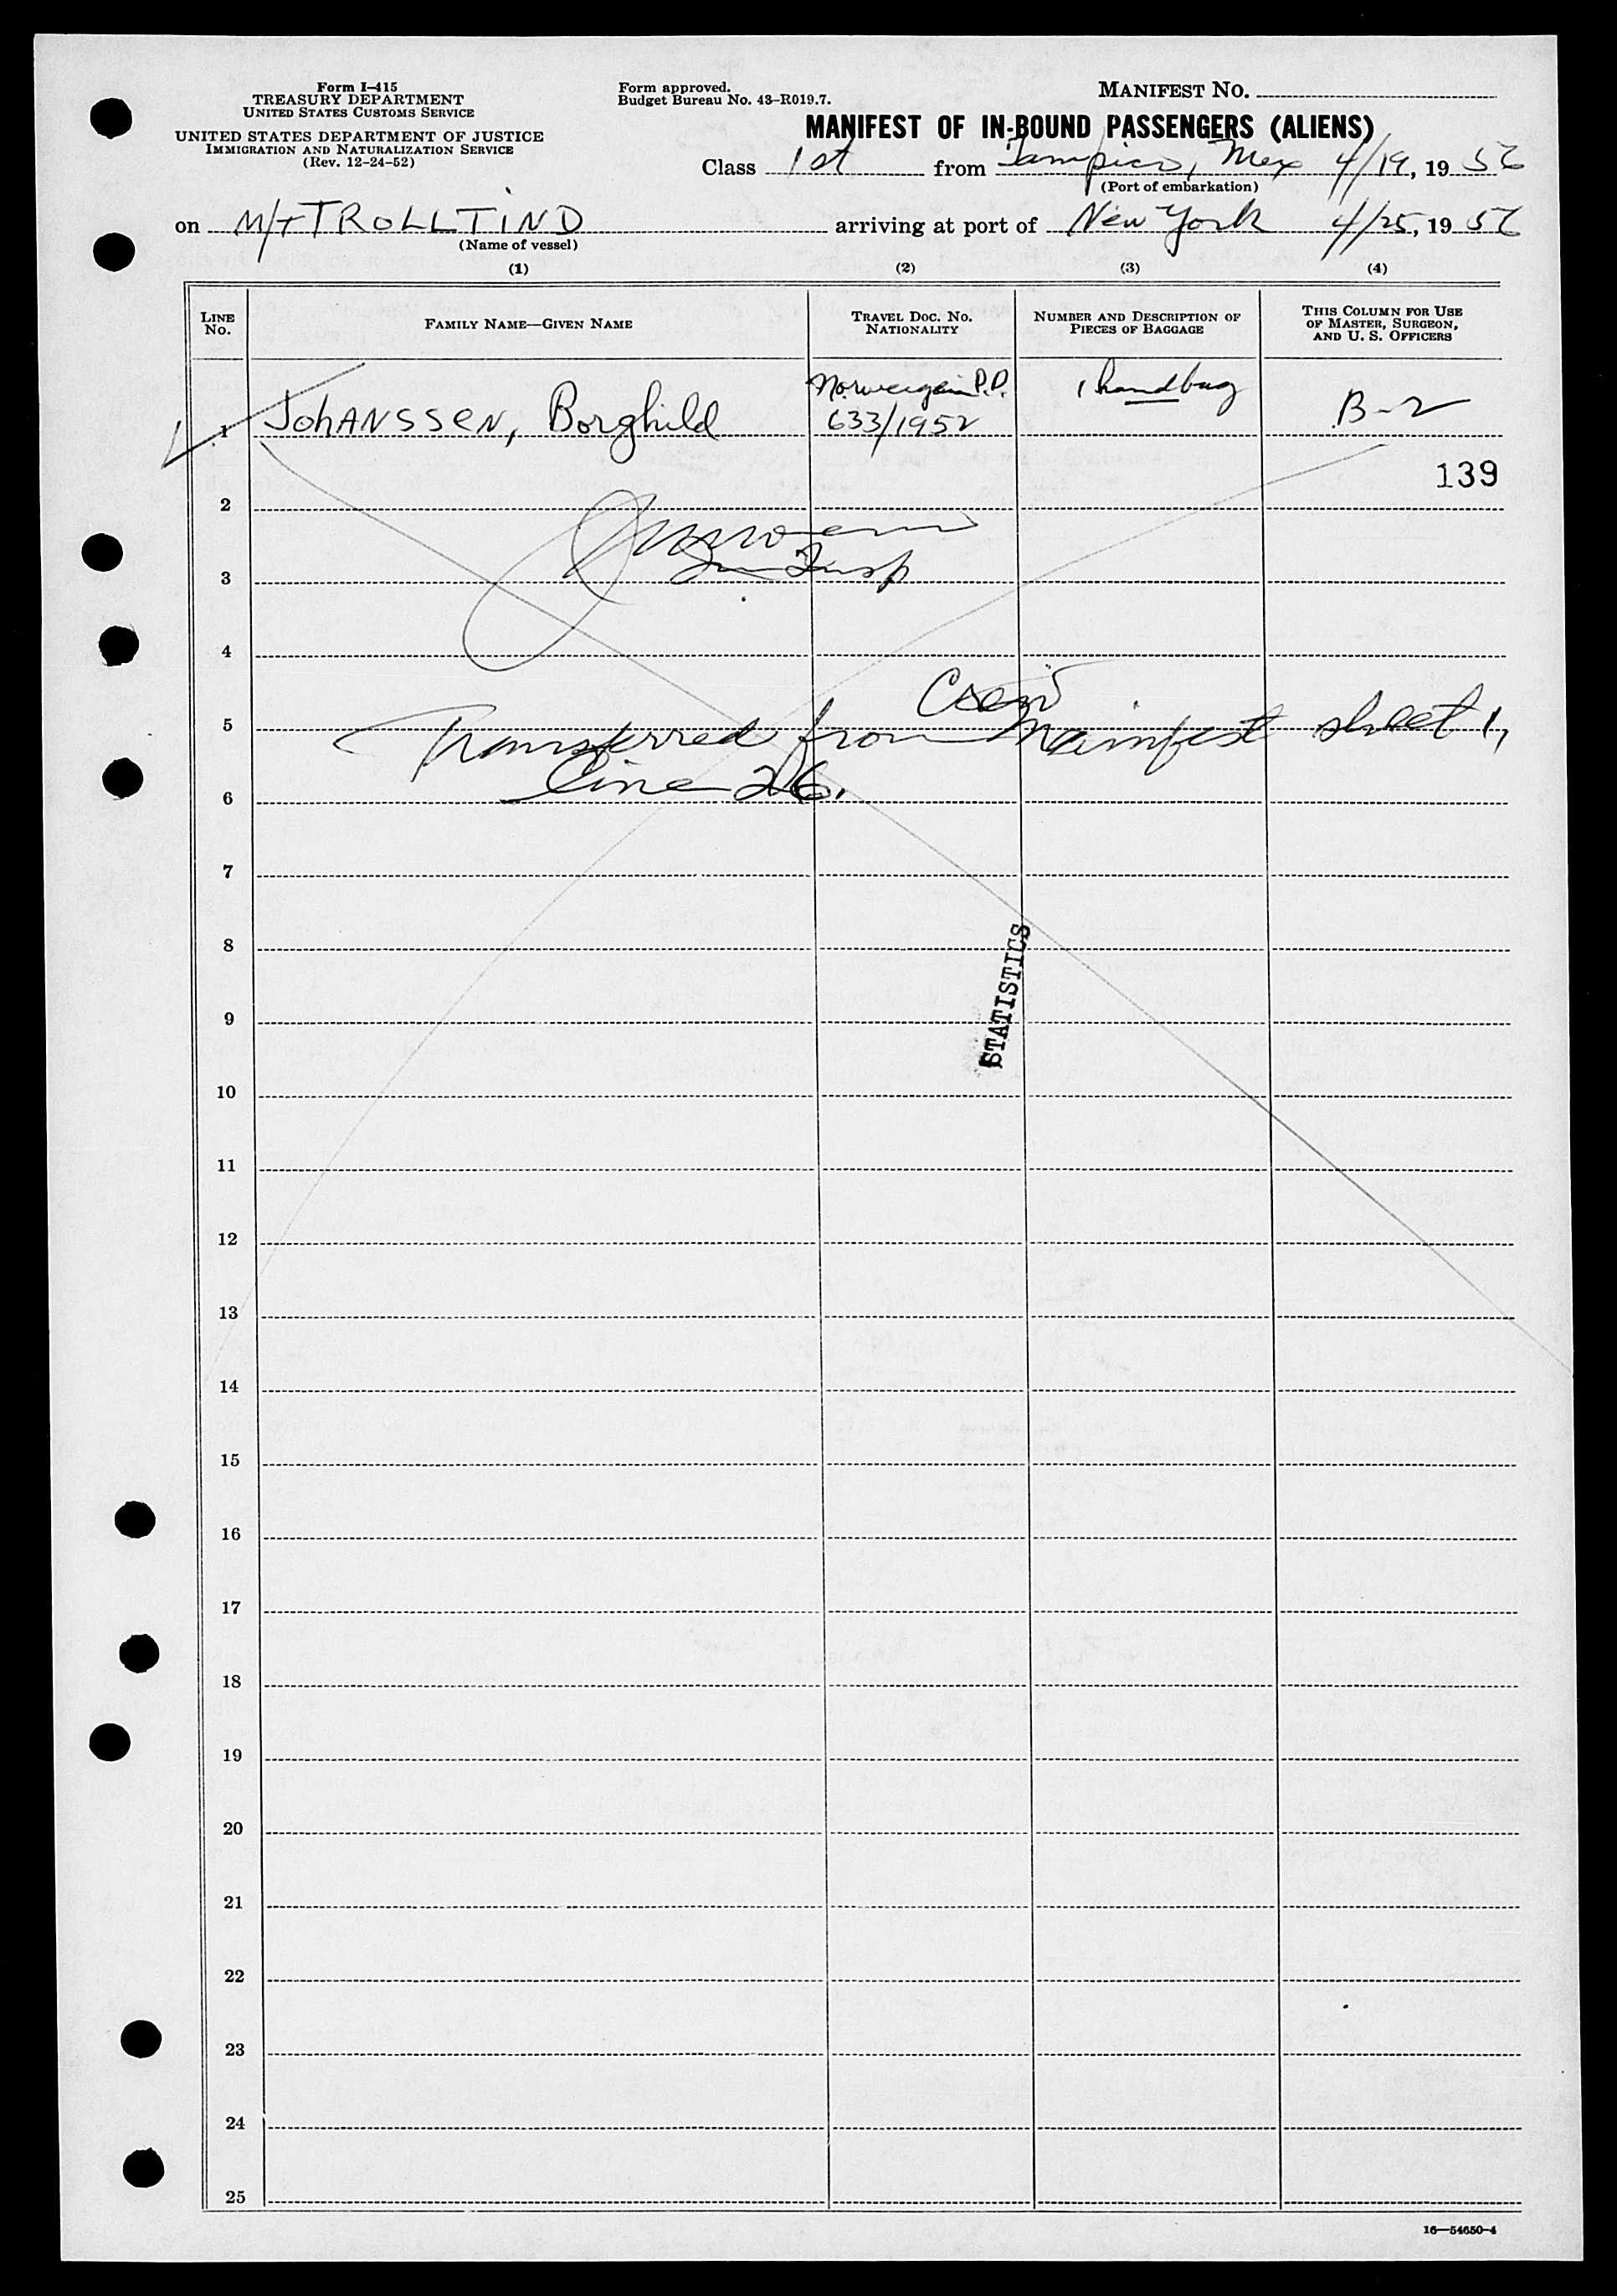 Form I-415
TREASURY DEPARTMENT
UNITED STATES CUSTOMS SERVICE
UNITED STATES DEPARTMENT OF JUSTICE
IMMIGRATION AND NATURALIZATION SERVICE
(Rev. 12-24-52)
Form approved.
Budget Bureau No. 43-R019.7.
MANIFEST NO.
MANIFEST OF IN-BOUND PASSENGERS (ALIENS)
Class 1st from Tampico, Mex 4/19, 19 56
(Port of embarkation)
on M/T TROLLTIND arriving at port of New York 4/25, 19 56
(Name of vessel)
(1) (2) (3) (4)
LINE NO. FAMILY NAME—GIVEN NAME TRAVEL DOC. NO. NATIONALITY NUMBER AND DESCRIPTION OF PIECES OF BAGGAGE THIS COLUMN FOR USE OF MASTER, SURGEON, AND U. S. OFFICERS
1 JohANSSeN, Borghild Norwegain P.P. 633/1952 1 handbag B-2
139
2
Imm Insp
3
4
Crew
5 Transferred from Manifest sheet 1,
6 line 26.
7
8
STATISTICS
9
10
11
12
13
14
15
16
17
18
19
20
21
22
23
24
25
16—54650-4